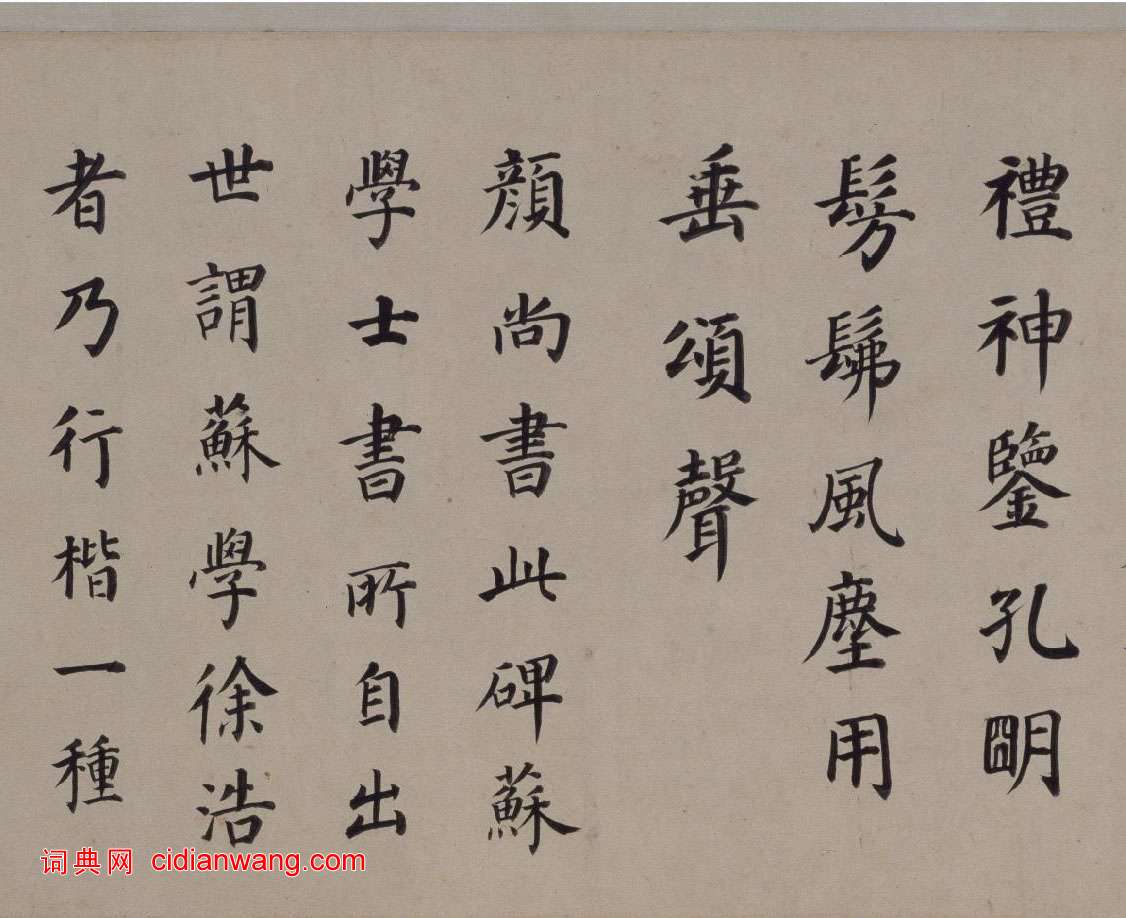 禮神鑒孔明
髣髴風塵用
垂頌聲
顏尚書此碑蘇
學士書所自出
世謂蘇學徐浩
者乃行楷一種
词典网 cidianwang.com